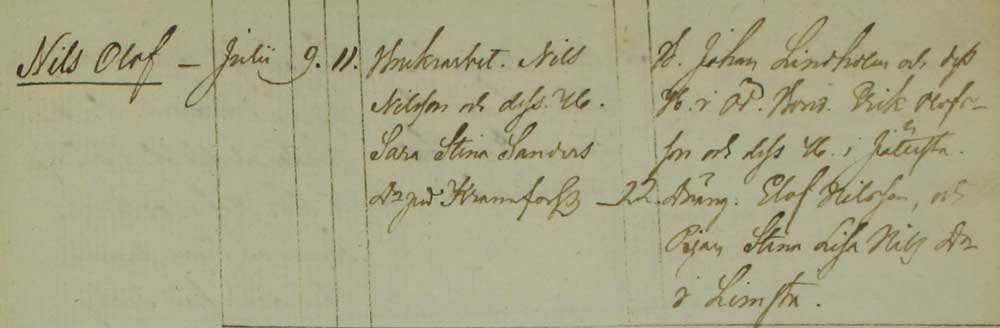 Nils Olof – Julii 9. 11. Bruksarbet. Nils
Nilsson och dess H.
Sara Stina Sanders
Dr på Kramforss 22.
B. Johan Lindholm och dess
H. i Bond. Erik Olofs-
son och dess H. i
Dräng. Elof Nilsson, och
Pigan Stina Lisa Nils Dr
i Limsta.